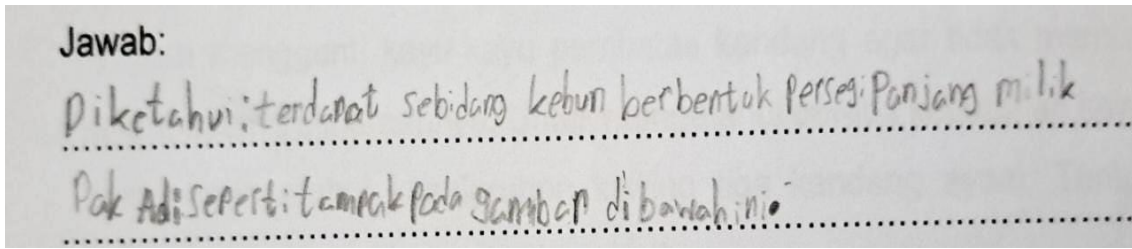 Jawab:
Diketahui: terdapat sebidang kebun berbentuk Persegi Panjang milik
Pak Adi seperti tampak pada gambar dibawah ini.